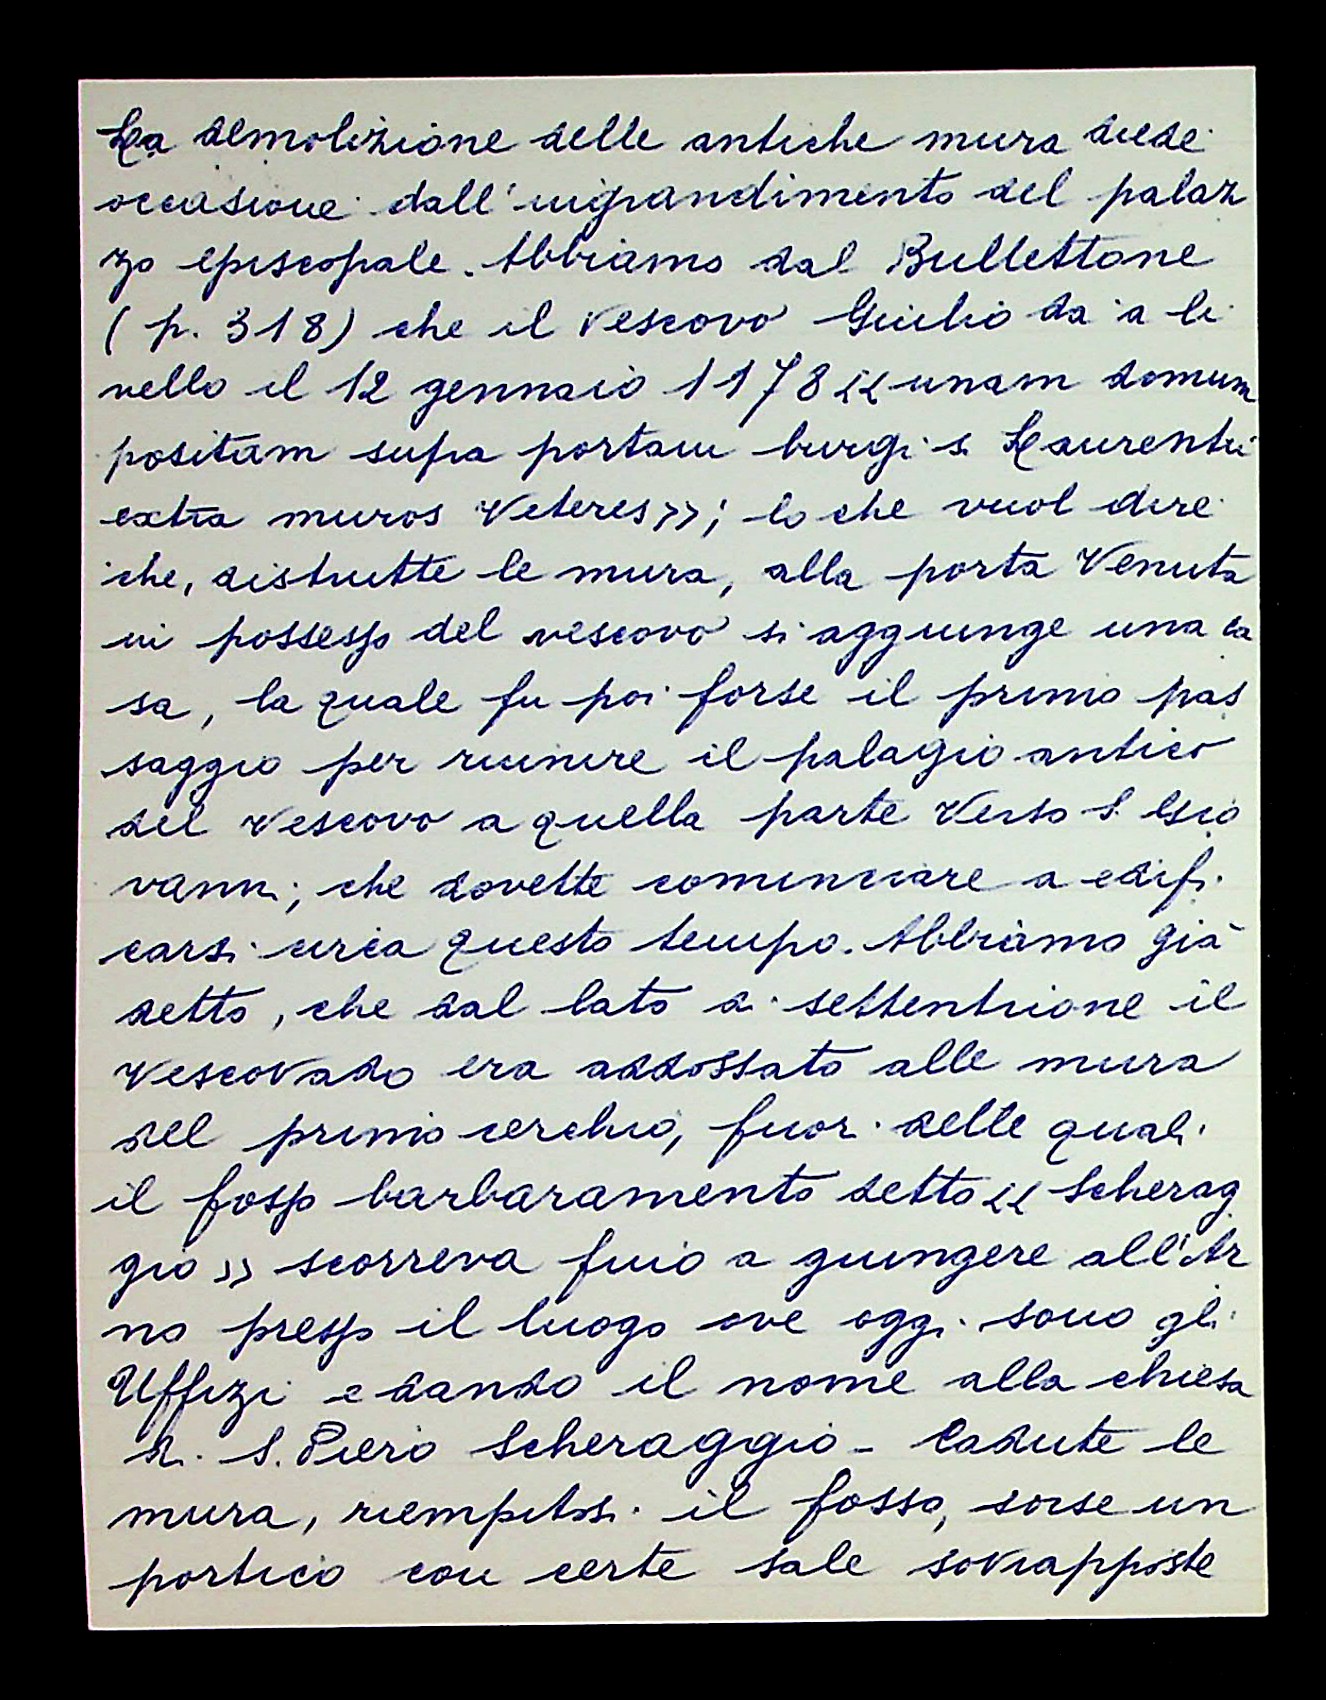 La demolizione delle antiche mura diede
occasione dall'ingrandimento del palaz
zo episcopale. Abbiamo dal Bullettone
(p. 318) che il vescovo Giulio da a li
vello il 12 gennaio 1178 << unam domum
positam supra portam burgi s. Laurentii
extra muros Veteres >>; lo che vuol dire
che, distrutte le mura, alla porta Venuta
in possesso del vescovo si aggiunge una ca
sa, la quale fu poi forse il primo pas
saggio per riunire il palagio antico
del Vescovo a quella parte Verso S. Gio
vanni; che dovette cominciare a edifi
carsi circa questo tempo. Abbiamo già
detto, che dal lato di settentrione il
Vescovado era addossato alle mura
del primo cerchio, fuori delle quali
il fosso barbaramento detto << Scherag
gio >> scorreva fino a giungere all'Ar
no presso il luogo ove oggi sono gli
Uffizi e dando il nome alla chiesa
di S. Piero Scheraggio - Cadute le
mura, riempitosi il fosso, sorse un
portico con certe sale sovrapposte